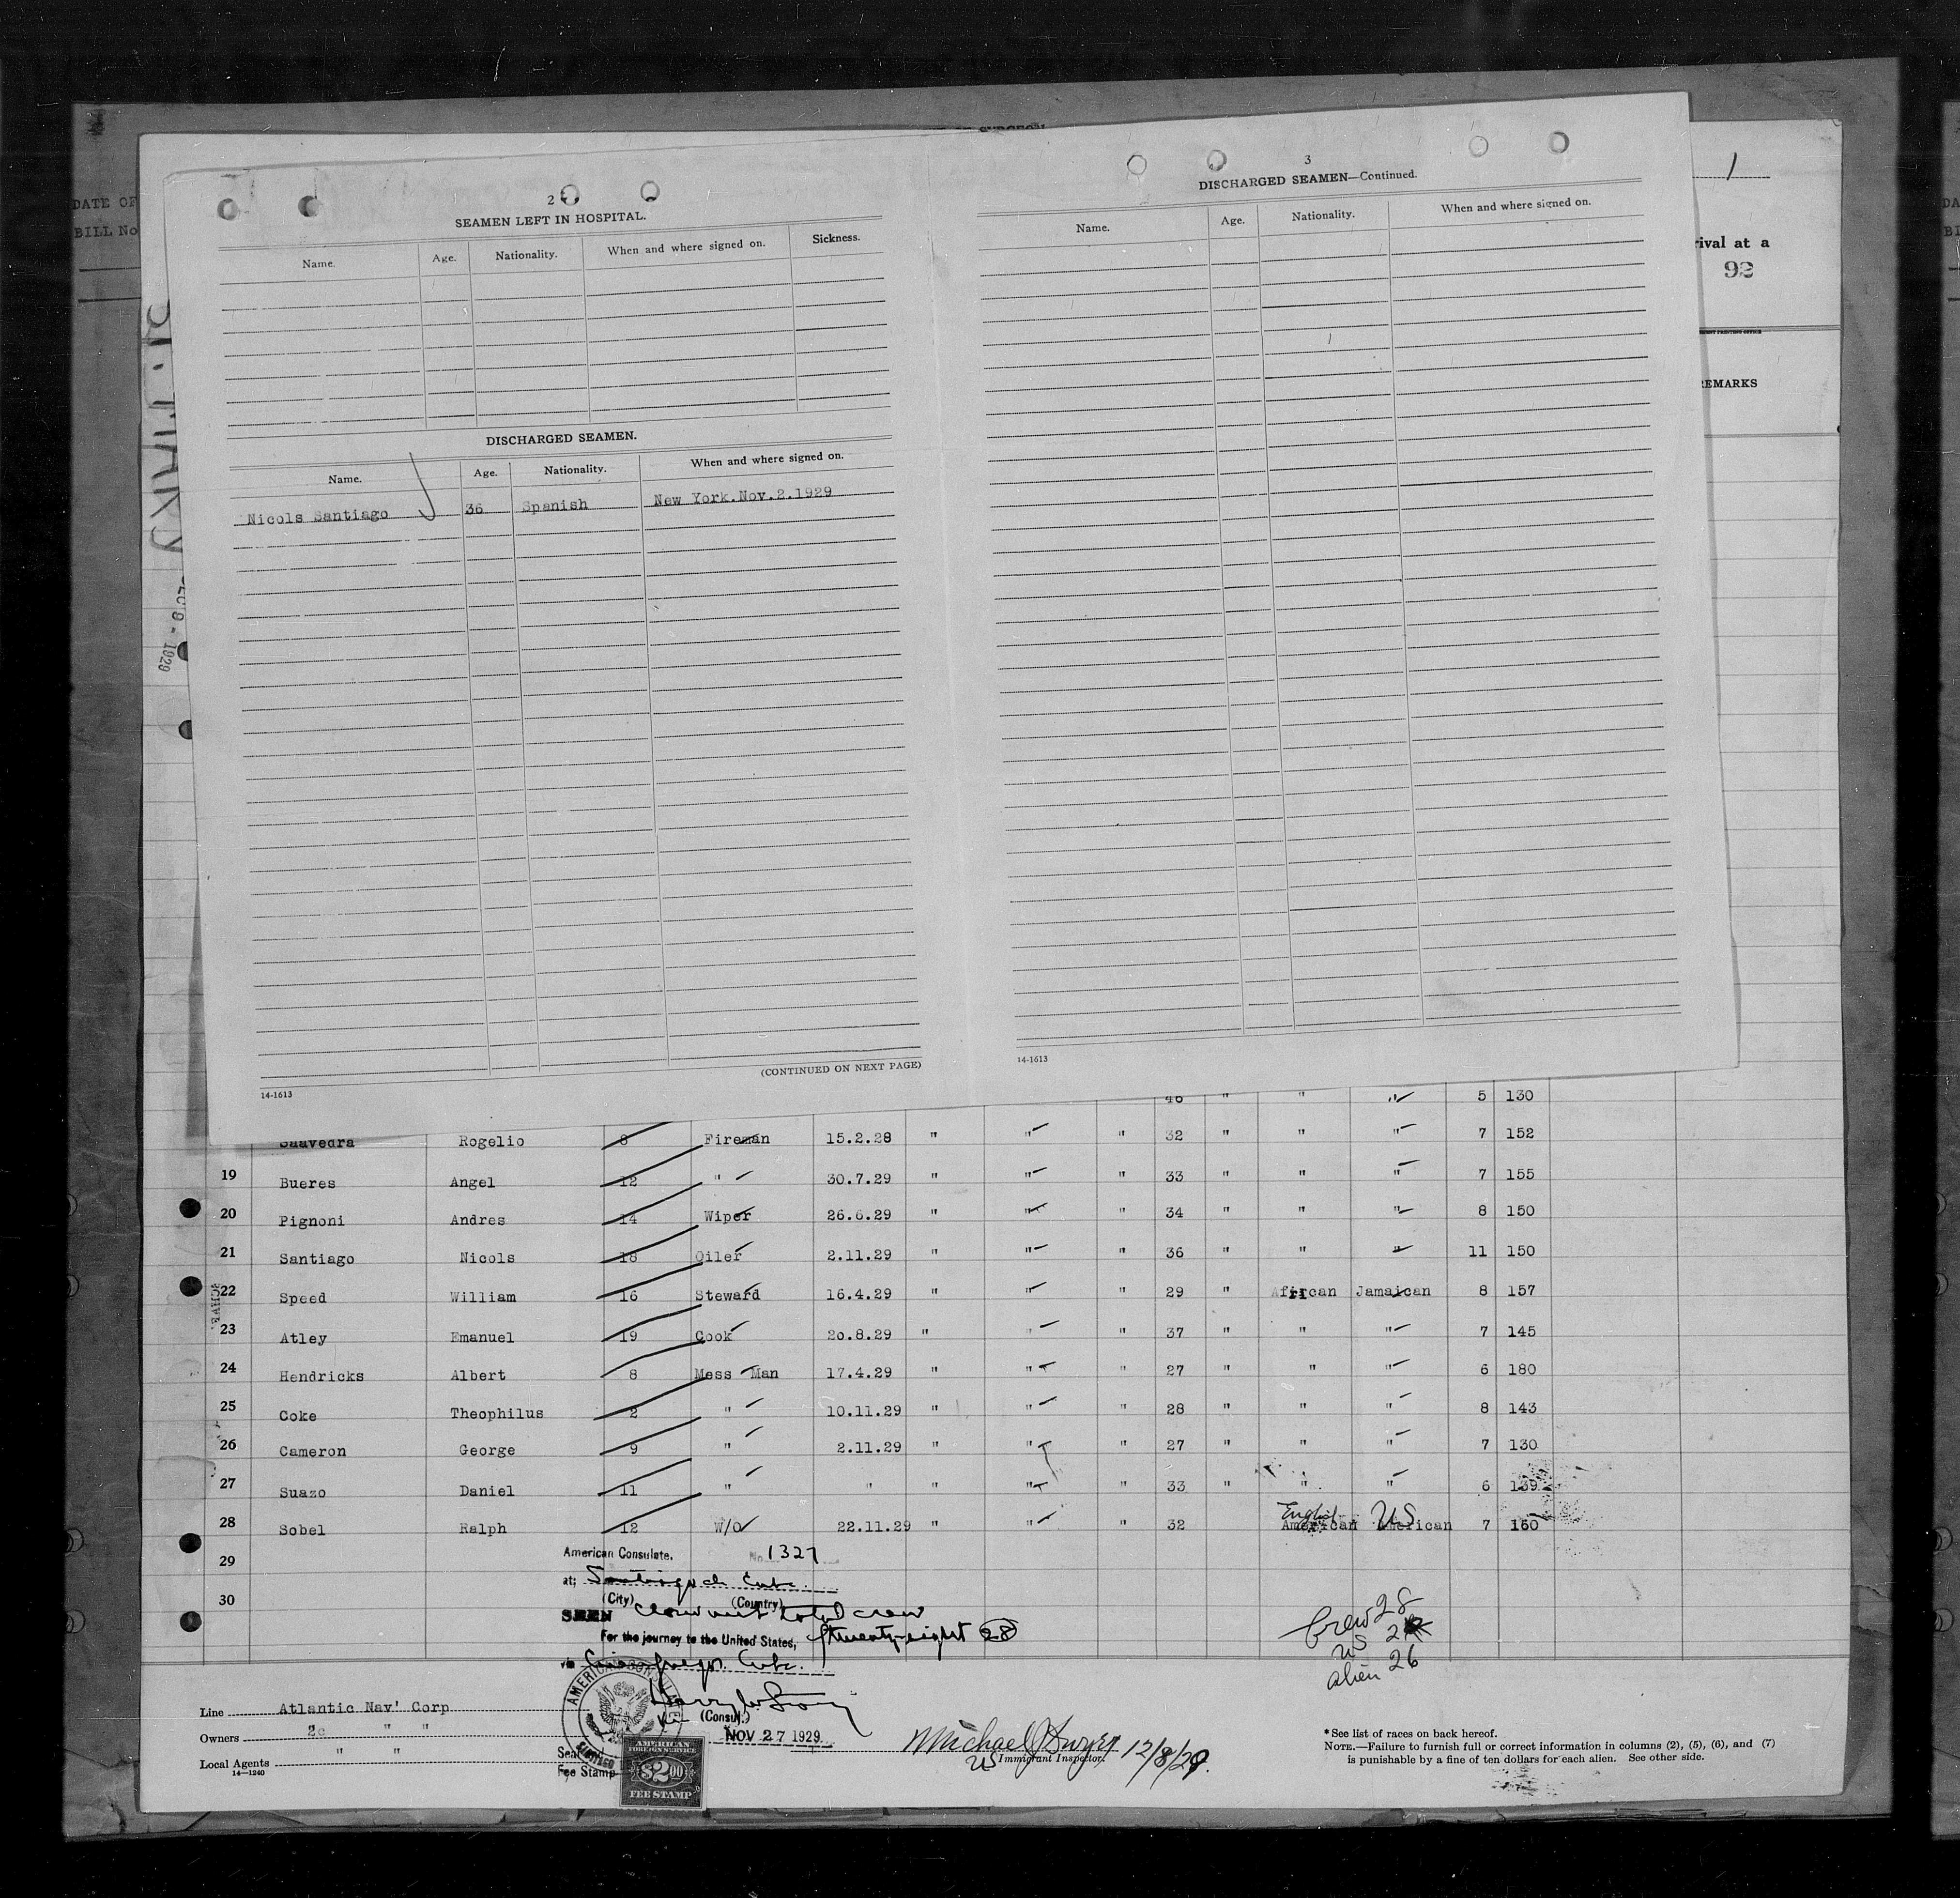 DATE OF
BILL No
1
rival at a
92
EMARKS
2
SEAMEN LEFT IN HOSPITAL.
Name. Age. Nationality. When and where signed on. Sickness.
DISCHARGED SEAMEN.
Name. Age. Nationality. When and where signed on.
Nicols Santiago 36 Spanish New York.Nov.2.1929
(CONTINUED ON NEXT PAGE)
14-1613
3
DISCHARGED SEAMEN—Continued.
Name. Age. Nationality. When and where signed on.
14-1613
- 1929
" " " 5 130
Saavedra Rogelio 8 Fireman 15.2.28 " " " 32 " " " 7 152
19 Bueres Angel 12 " 30.7.29 " " " 33 " " " 7 155
20 Pignoni Andres 14 Wiper 26.6.29 " " " 34 " " " 8 150
21 Santiago Nicols 18 Oiler 2.11.29 " " " 36 " " " 11 150
22 Speed William 16 Steward 16.4.29 " " " 29 " African Jamaican 8 157
23 Atley Emanuel 19 Cook 20.8.29 " " " 37 " " " 7 145
24 Hendricks Albert 8 Mess Man 17.4.29 " " " 27 " " " 6 180
25 Coke Theophilus 2 " 10.11.29 " " " 28 " " " 8 143
26 Cameron George 9 " 2.11.29 " " " 27 " " " 7 130
27 Suazo Daniel 11 " " " " " 33 " " " 6 139
English US
28 Sobel Ralph 12 W/O 22.11.29 " " " 32 American American 7 160
29
30
American Consulate, No. 1327
at; Santiago de Cuba.
(City) (Country)
SEEN total crew
For the journey to the United States, twenty-eight 28
via Cuba.
(Consul.)
NOV 27 1929
Seal
Fee Stamp
AMERICAN
FOREIGN SERVICE
$2.00
FEE STAMP
Crew 28
US 2
alien 26
Line Atlantic Nav' Corp
Owners " "
Local Agents " "
14—1240
Michael
US Immigrant Inspector. 12/8/29.
*See list of races on back hereof.
NOTE.—Failure to furnish full or correct information in columns (2), (5), (6), and (7)
is punishable by a fine of ten dollars for each alien. See other side.